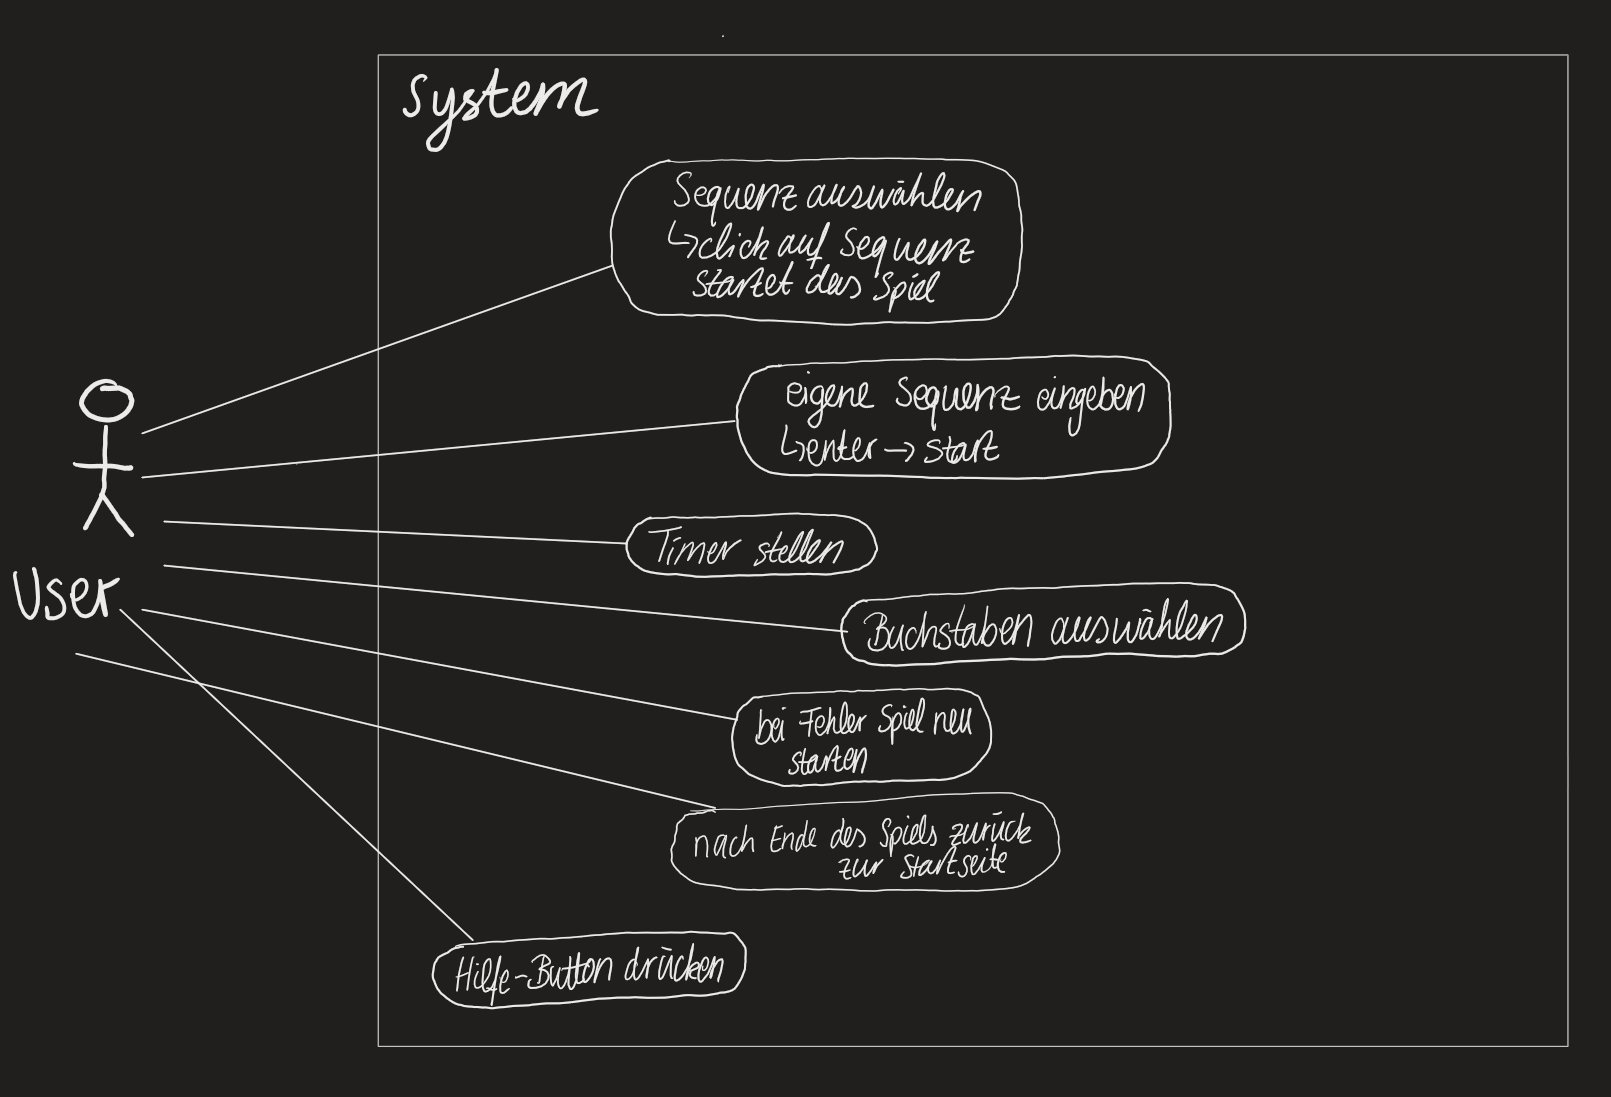 System
Sequenz auswählen
↳click auf Sequenz
startet das Spiel
eigene Sequenz eingeben
↳enter → start
Timer stellen
User
Buchstaben auswählen
bei Fehler Spiel neu
starten
nach Ende des Spiels zurück
zur Startseite
Hilfe-Button drücken